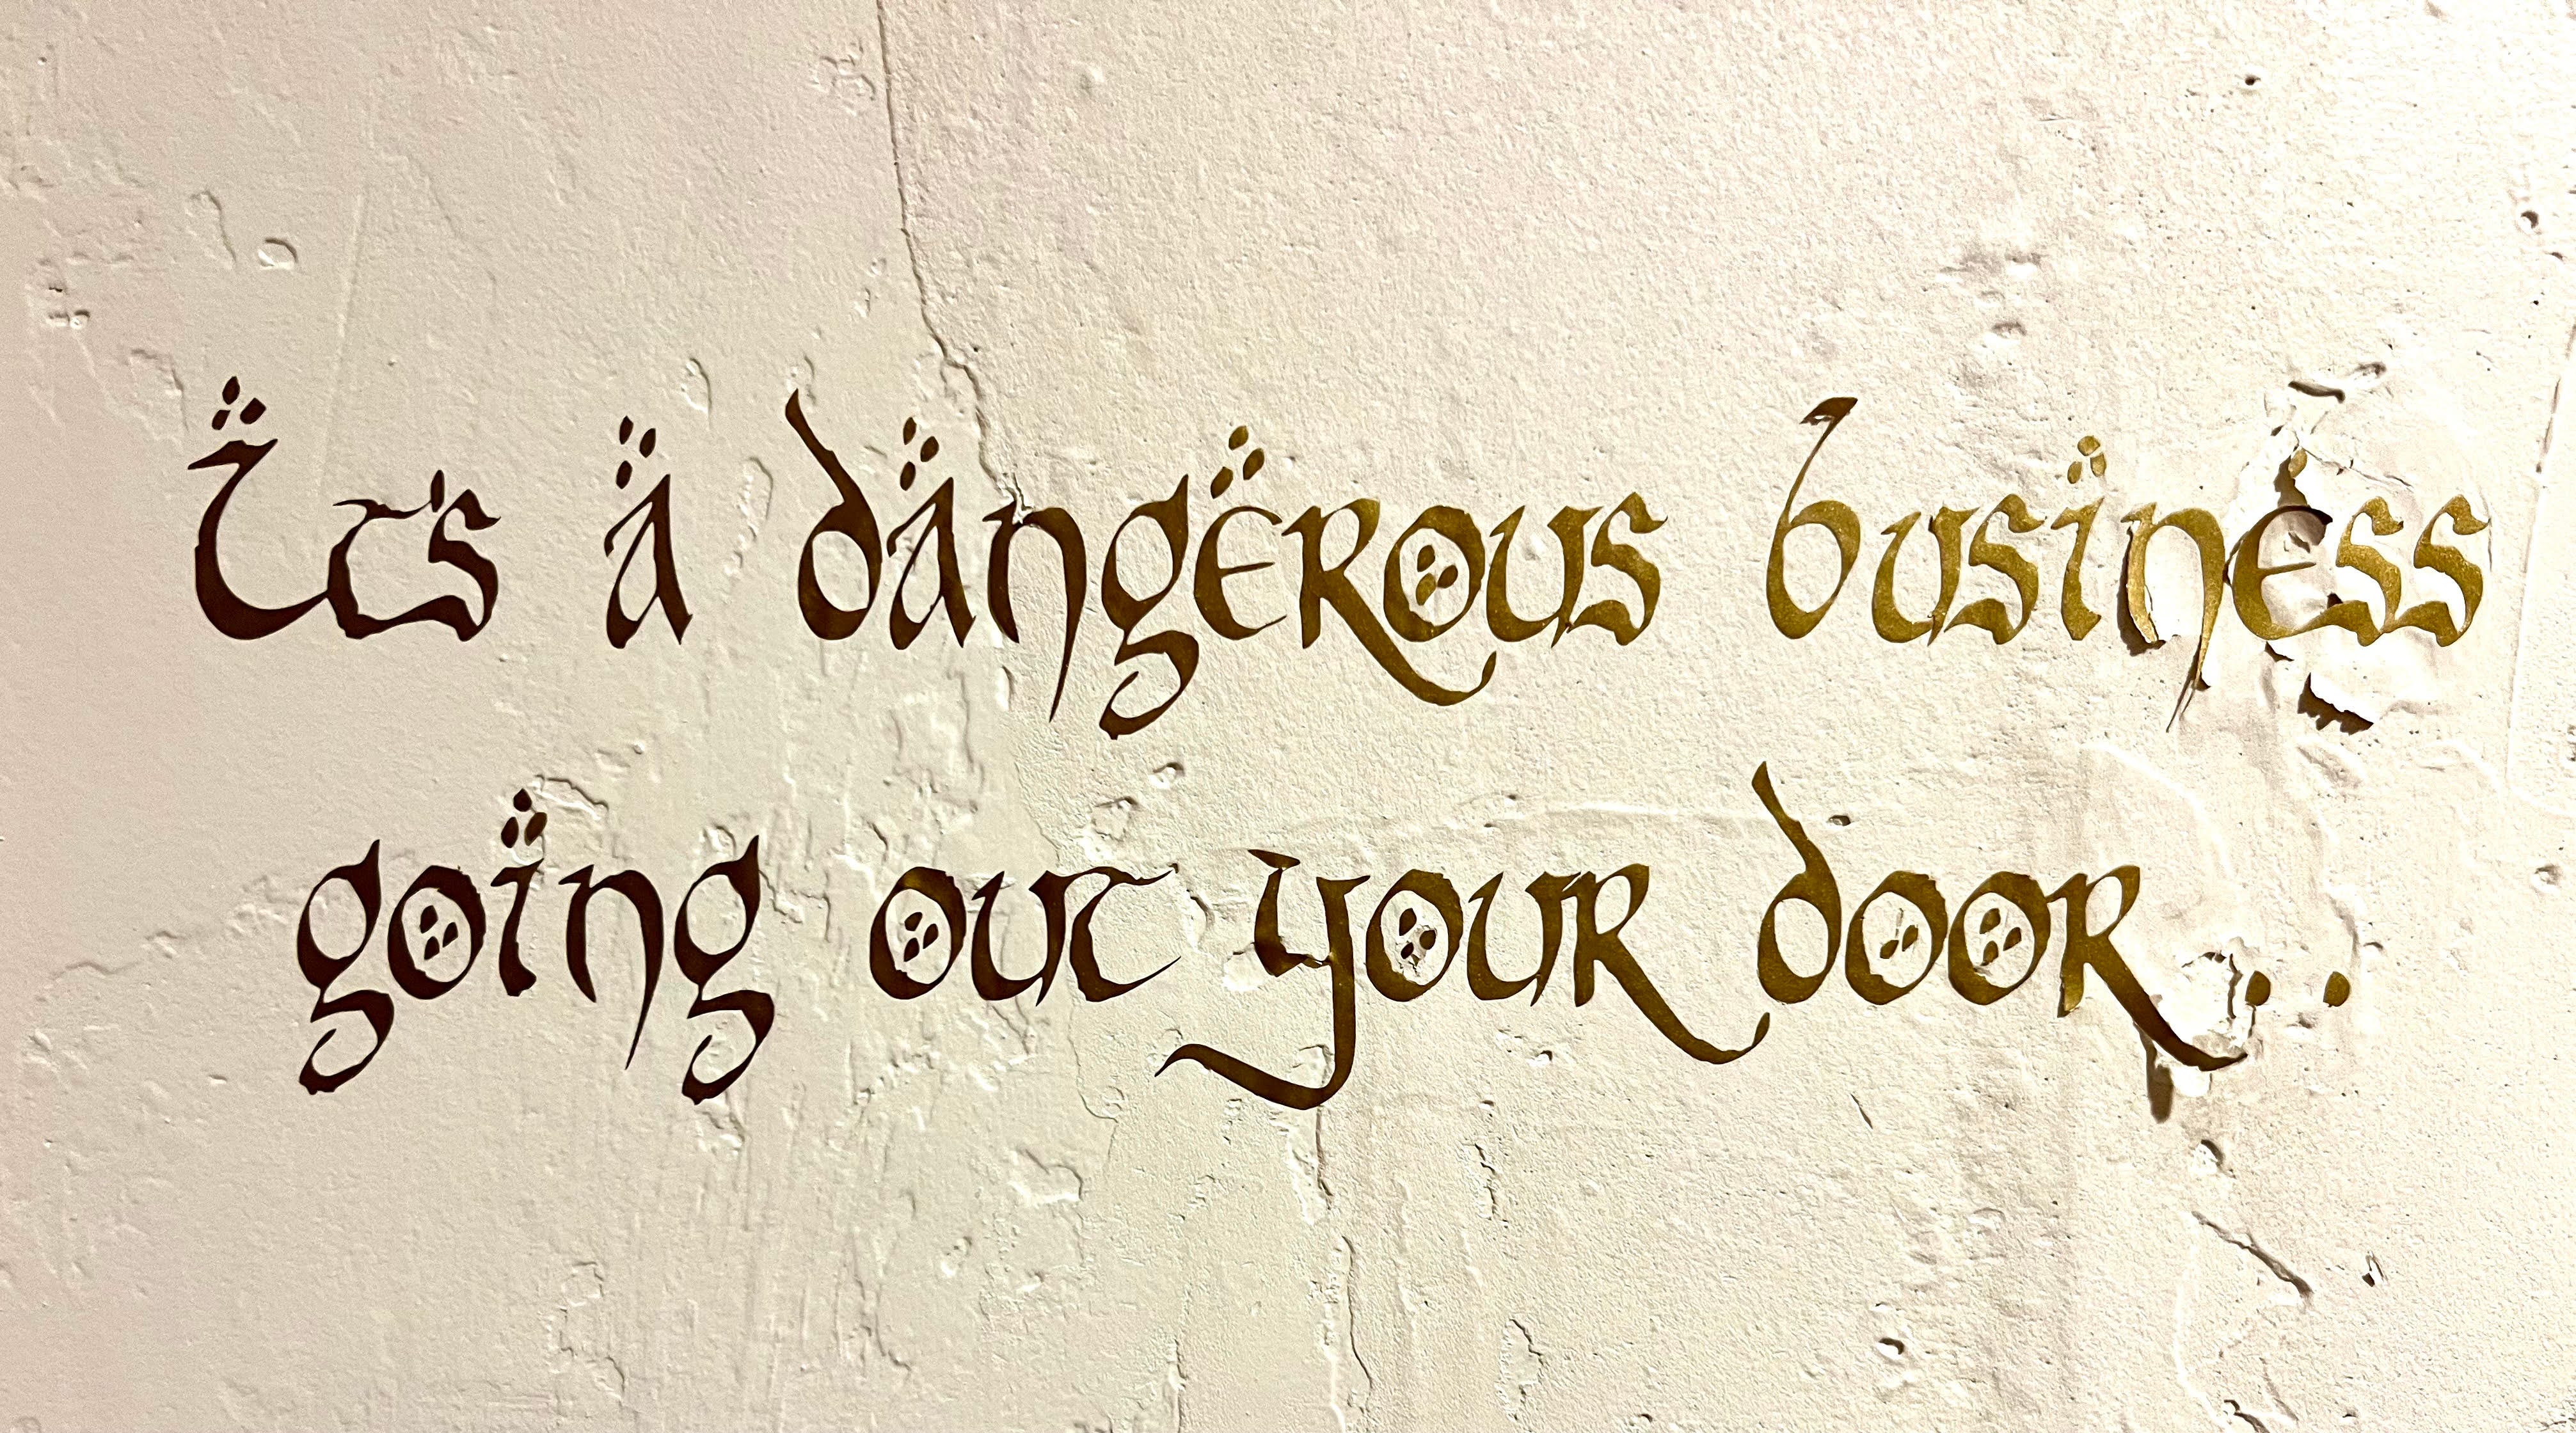 It's a dangerous business
going out your door..